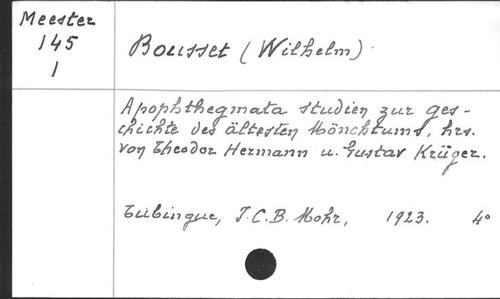 Meester
145
1
Bousset (Wilhelm)
Apophthegmata studien zur ges-
chichte des ältesten Mönchtums, hrs.
von Theodor Hermann u. Gustav Krüger.
Tubingue, J.C.B. Mohr, 1923. 4º